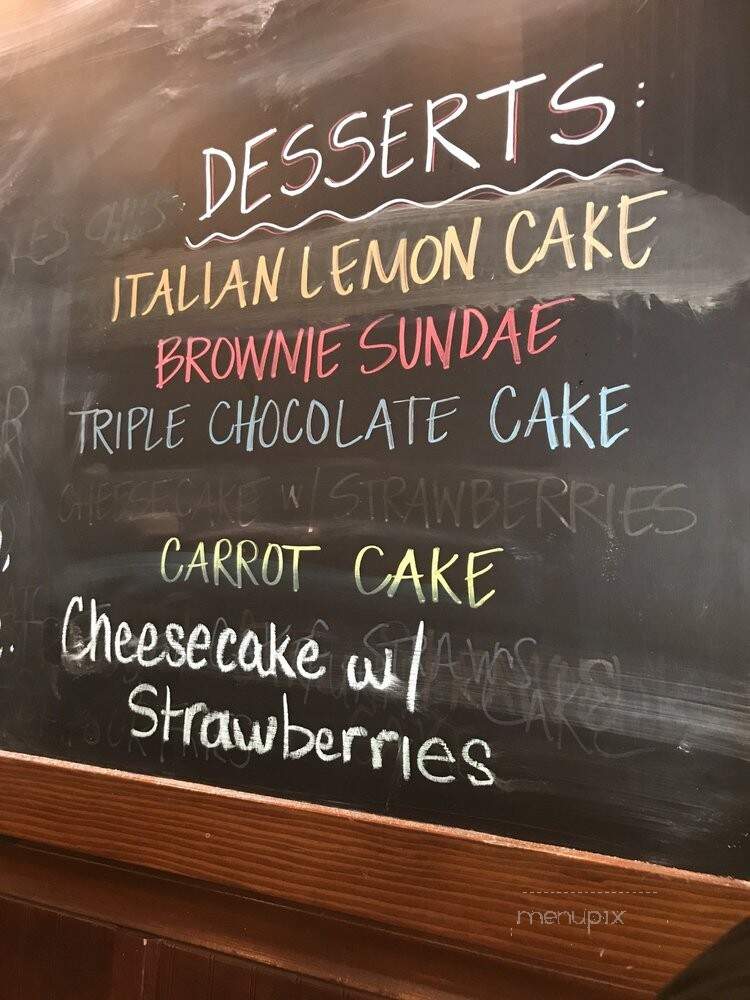 DESSERTS:
ITALIAN LEMON CAKE
BROWNIE SUNDAE
TRIPLE CHOCOLATE CAKE
CHEESECAKE W/ STRAWBERRIES
CARROT CAKE
Cheesecake w/
Strawberries
menupix